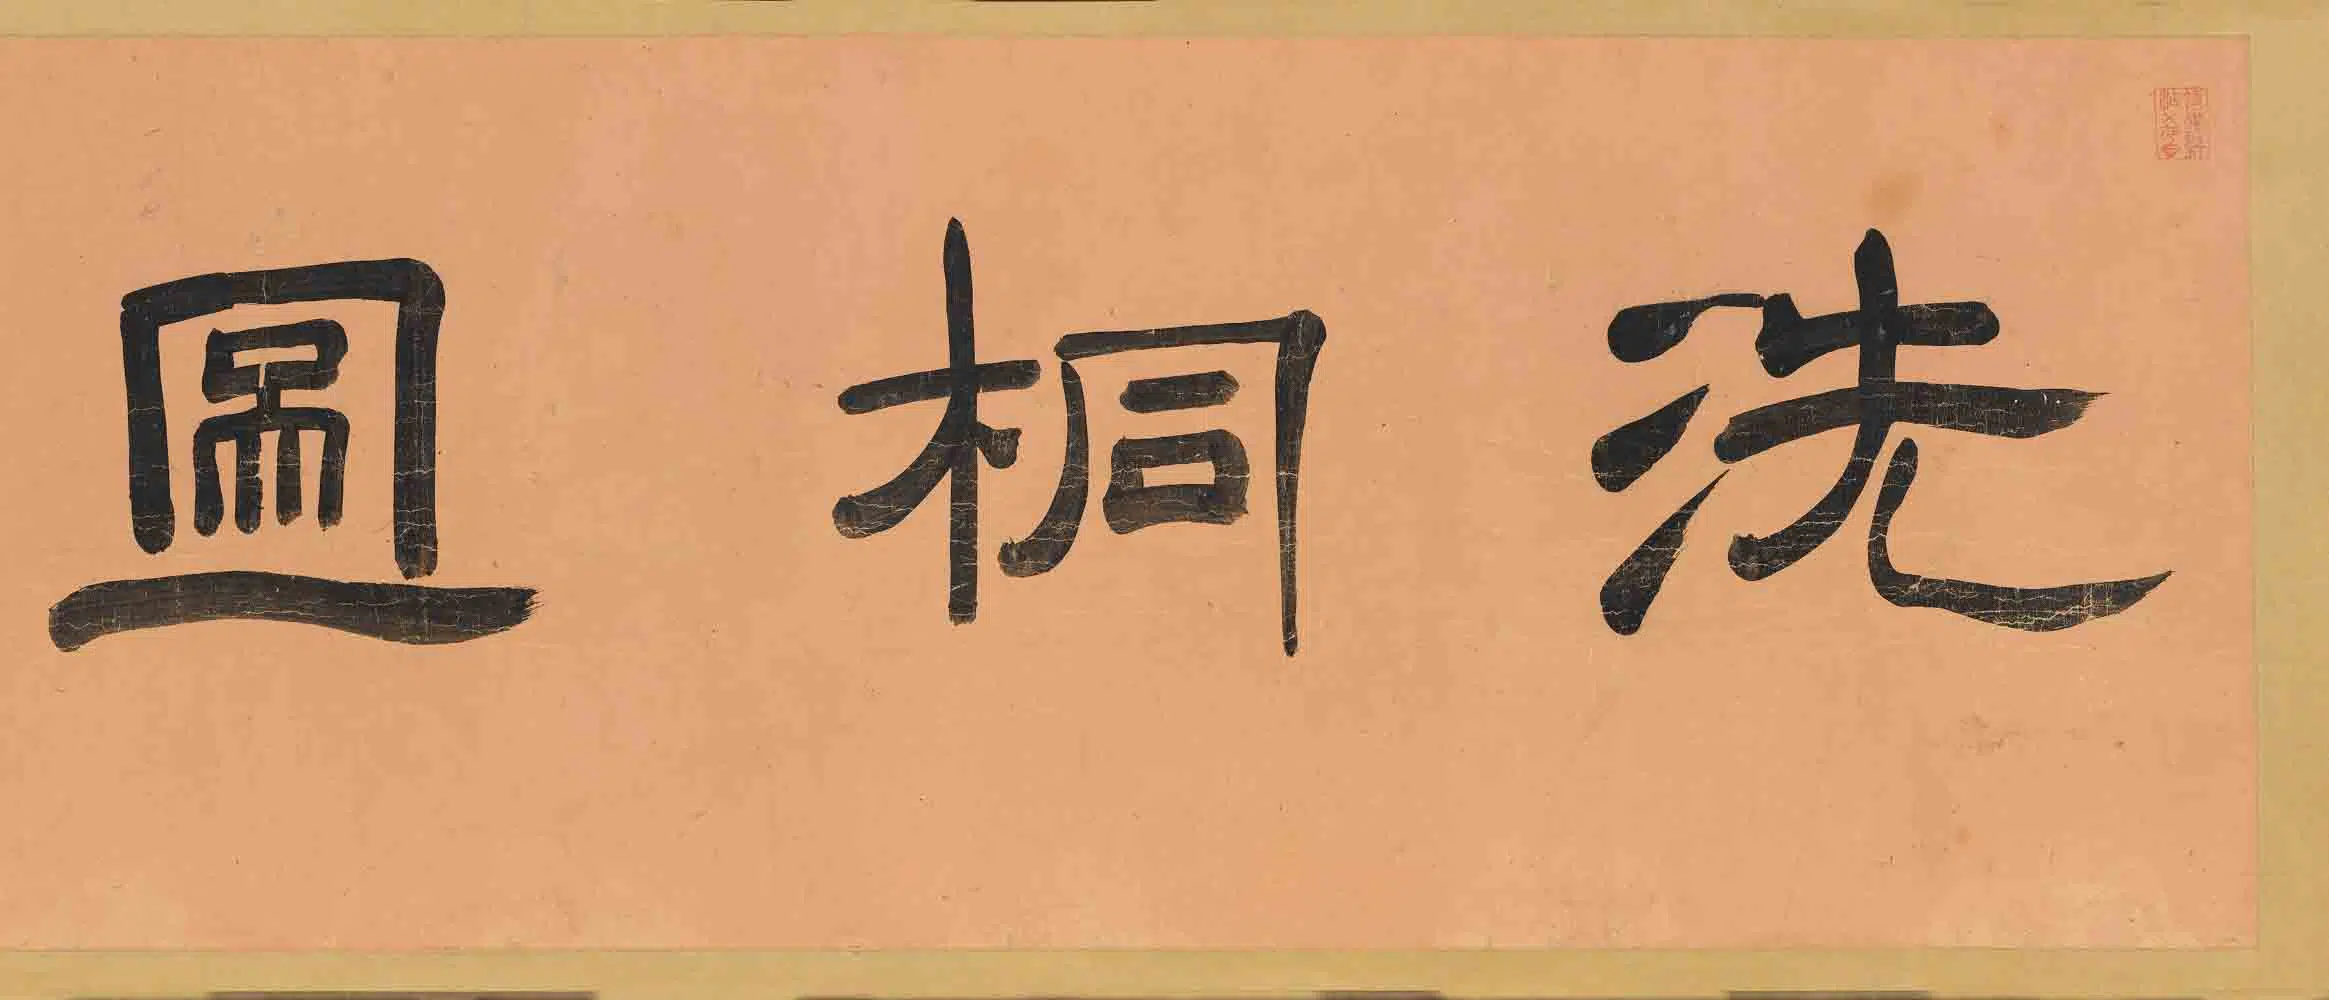 洗桐圖